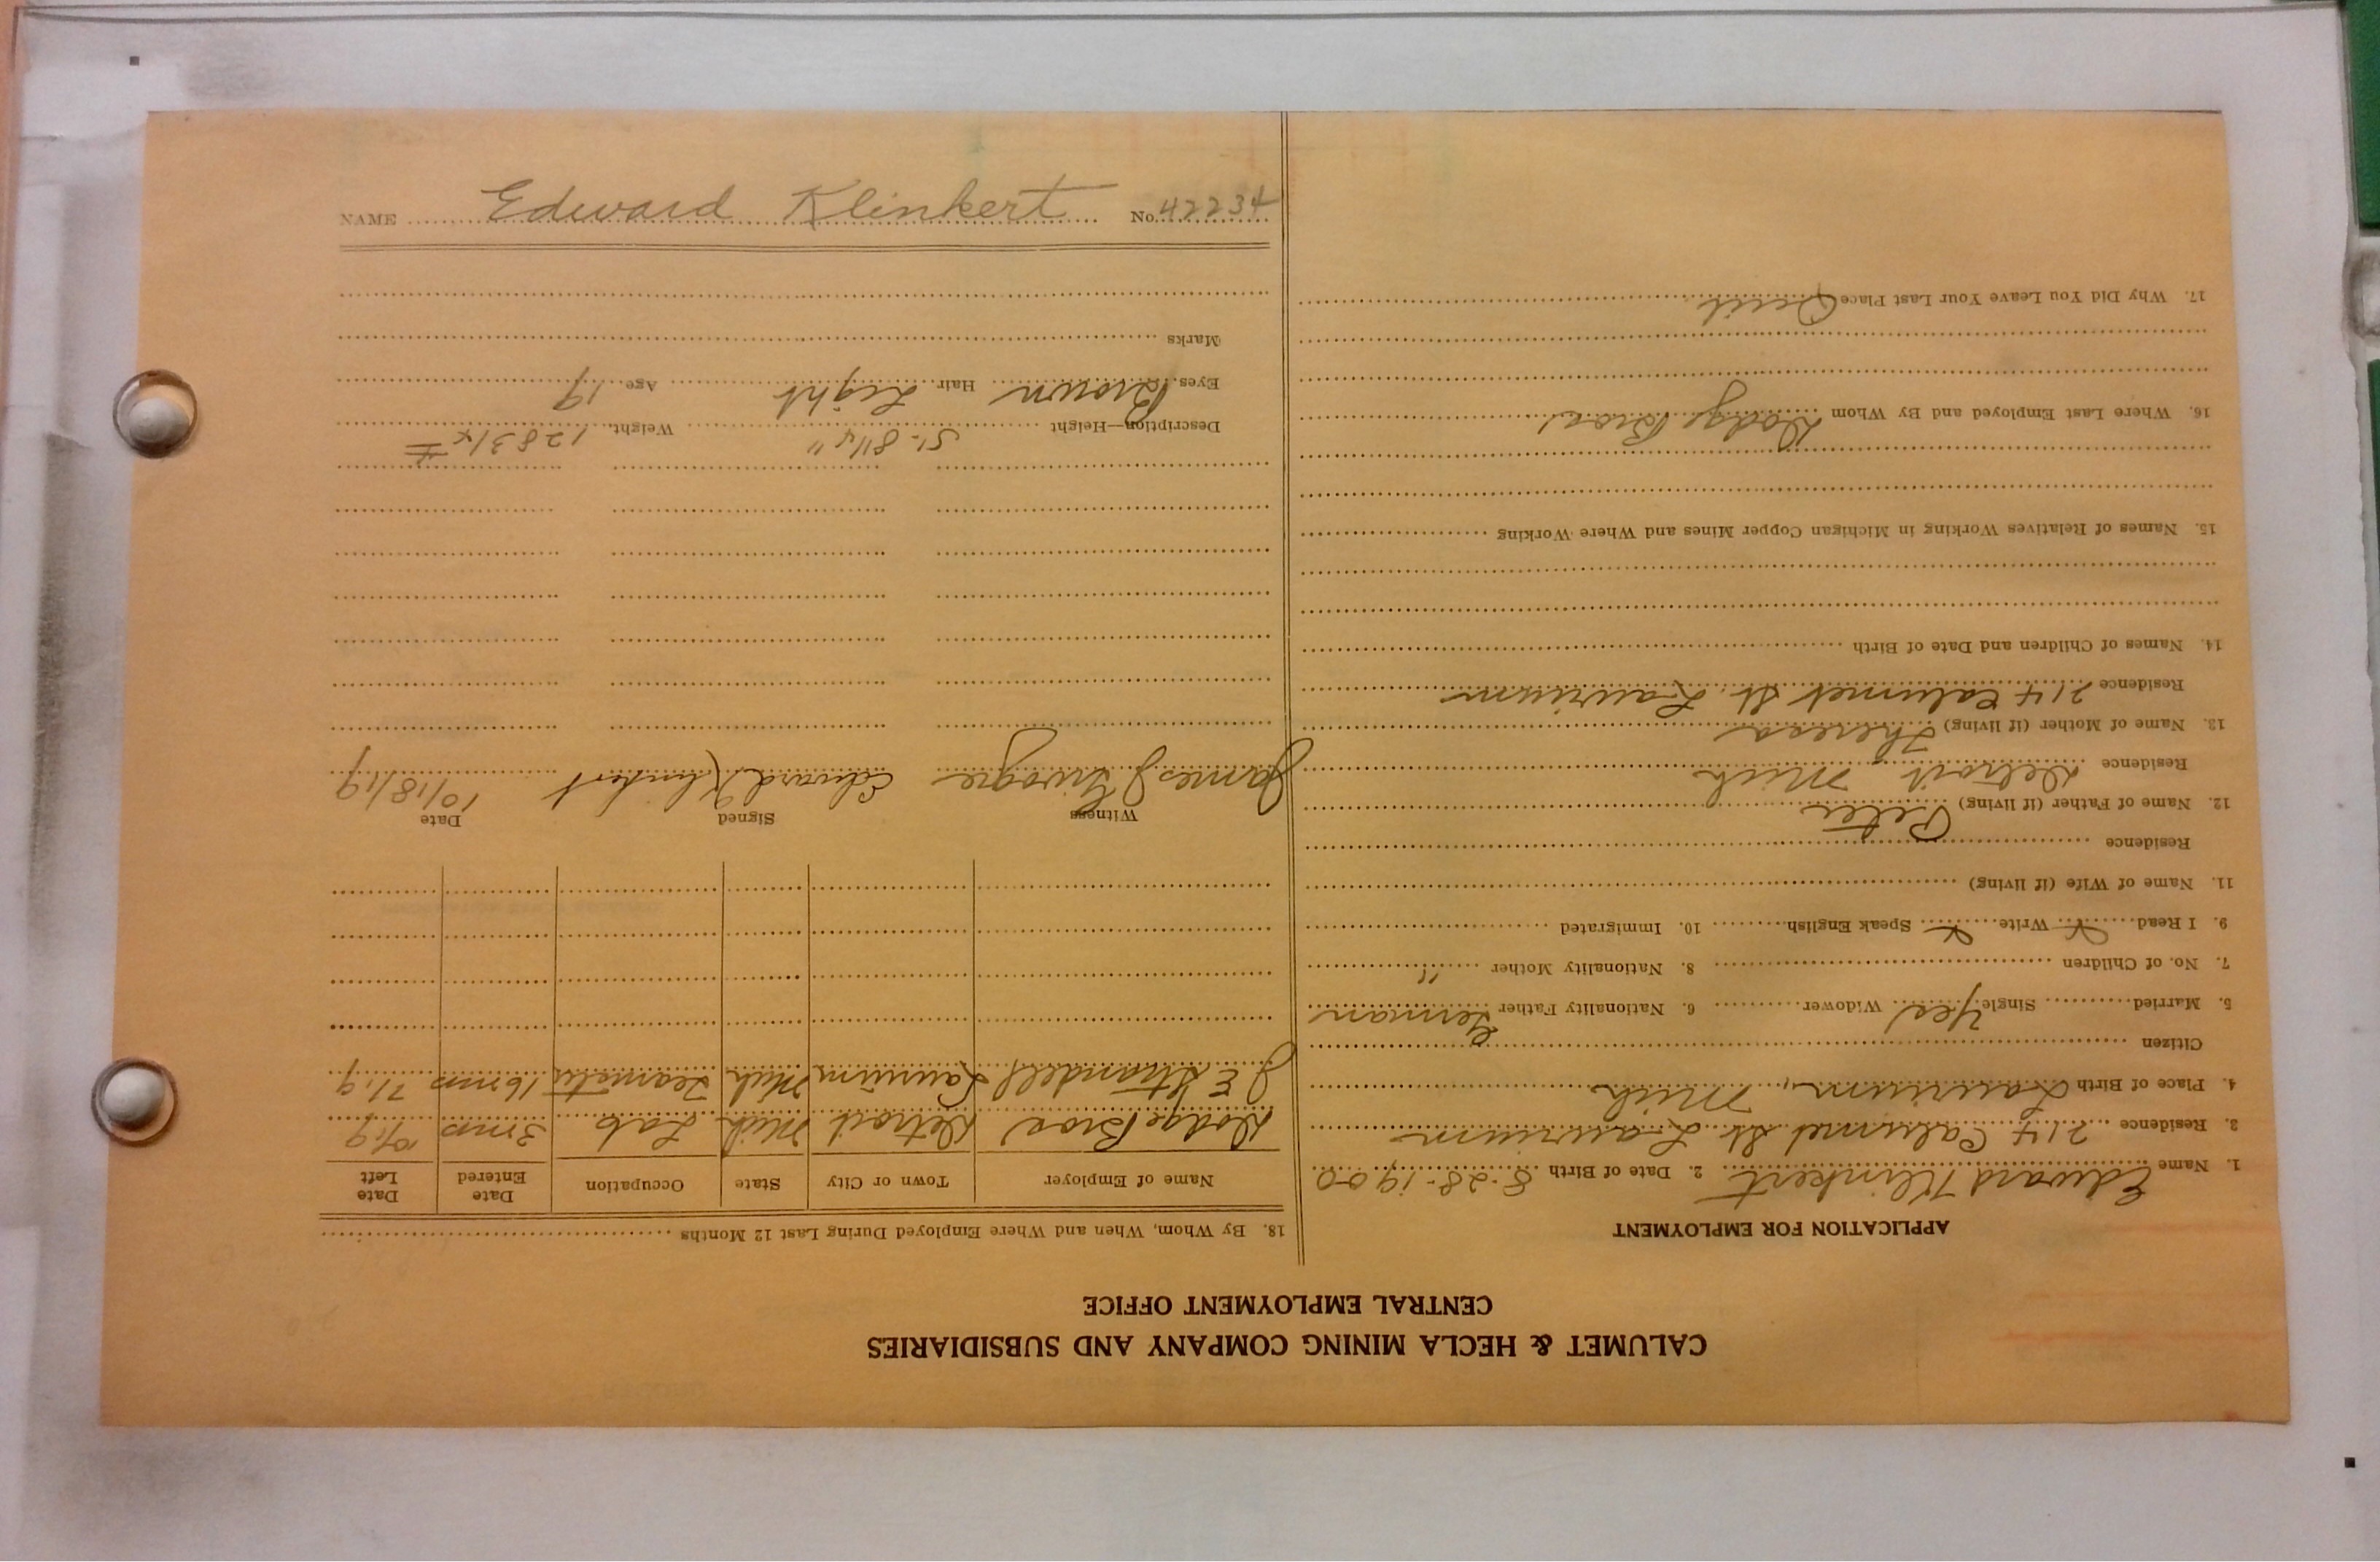 CALUMET & HECLA MINING COMPANY AND SUBSIDIARIES
CENTRAL EMPLOYMENT OFFICE
APPLICATION FOR EMPLOYMENT
1. Name Edward Klinkert 2. Date of Birth 8-28-1900
3. Residence 214 Calumet St. Laurium
4. Place of Birth Laurium, Mich
Citizen
5. Married Single Yes Widower 6. Nationality Father German
7. No. of Children 8. Nationality Mother "
9. I Read Write Speak English 10. Immigrated
11. Name of Wife (if living)
Residence
12. Name of Father (if living) Peter
Residence Detroit Mich
13. Name of Mother (if living) Theresa
Residence 214 Calumet St. Laurium
14. Names of Children and Date of Birth
15. Names of Relatives Working in Michigan Copper Mines and Where Working
16. Where Last Employed and By Whom Dodge Bros
17. Why Did You Leave Your Last Place Quit
18. By Whom, When and Where Employed During Last 12 Months
Name of Employer Town or City State Occupation Date Entered Date Left
Dodge Bros Detroit Mich Lab 3 mos 10/19
J E Strandell Laurium Mich Teamster 16 mos 7/19
Witness Signed Date
James J Edward Klinkert 10/18/19
Description—Height 5'-8 1/4" Weight 128 3/4 #
Eyes Brown Hair Light Age 19
Marks
NAME Edward Klinkert No. 42234